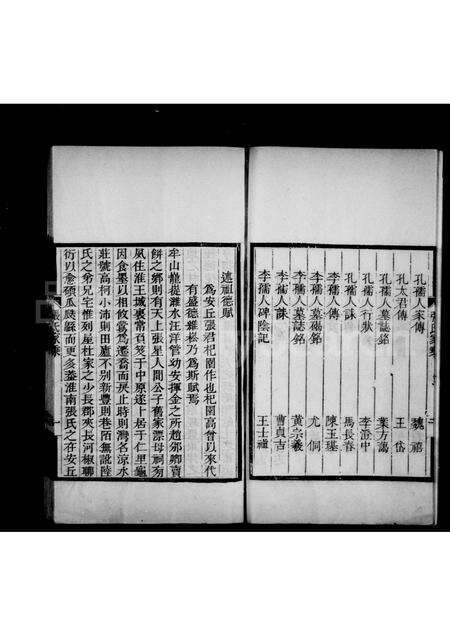 孔孺人家傳 魏禧
孔太君傳 王岱
孔孺人墓誌銘 葉方藹
孔孺人行狀 李澄中
孔孺人誄 馬長春
李孺人傳 陳玉璂
李孺人墓碣銘 尤侗
李孺人墓誌銘 黃宗羲
李孺人誄 曹貞吉
李孺人碑陰記 王士禛
述祖德賦
為安丘張君杞園作也杞園高曾以來代
有盛德維崧乃為斯賦焉
牟山龍從濰水汪洋管幼安揮金之所趙邠卿賣
餅之鄉則有天上張星人間公子舊家漂母祠旁
夙住淮王城裏常負笈于中原遂卜居于仁里龜
因食墨以相攸鶯為遷喬而戾止時則灣名涼水
莊號高柯小沛則田廬不別新豐則巷陌無訛陸
氏之弟兄宅惟列星杜家之少長郡夾長河椒聊
衍以愈碩瓜瓞緜而更多蓋淮南張氏之在安丘